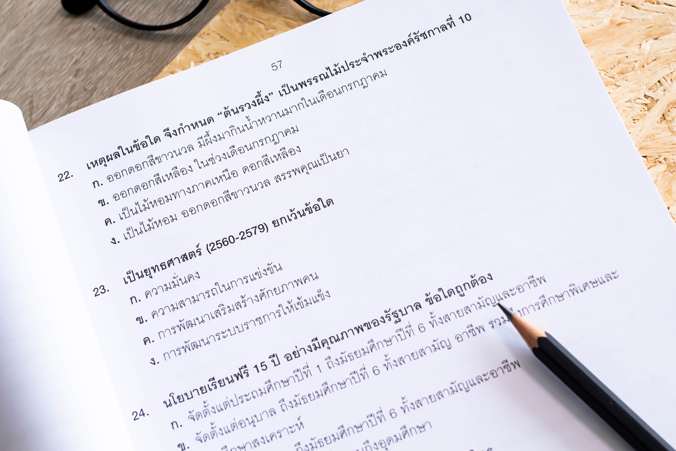 57
22. เหตุผลในข้อใด จึงกำหนด “ต้นรวงผึ้ง” เป็นพรรณไม้ประจำพระองค์รัชกาลที่ 10
ก. ออกดอกสีขาวนวล มีผึ้งมากินน้ำหวานมากในเดือนกรกฎาคม
ข. ออกดอกสีเหลือง ในช่วงเดือนกรกฎาคม
ค. เป็นไม้หอมทางภาคเหนือ ดอกสีเหลือง
ง. เป็นไม้หอม ออกดอกสีขาวนวล สรรพคุณเป็นยา
23. เป็นยุทธศาสตร์ (2560-2579) ยกเว้นข้อใด
ก. ความมั่นคง
ข. ความสามารถในการแข่งขัน
ค. การพัฒนาเสริมสร้างศักยภาพคน
ง. การพัฒนาระบบราชการให้เข้มแข็ง
24. นโยบายเรียนฟรี 15 ปี อย่างมีคุณภาพของรัฐบาล ข้อใดถูกต้อง
ก. จัดตั้งแต่ประถมศึกษาปีที่ 1 ถึงมัธยมศึกษาปีที่ 6 ทั้งสายสามัญและอาชีพ
ข. จัดตั้งแต่อนุบาล ถึงมัธยมศึกษาปีที่ 6 ทั้งสายสามัญ อาชีพ การศึกษาพิเศษและ
ศึกษาสงเคราะห์
ถึงมัธยมศึกษาปีที่ 6 ทั้งสายสามัญและอาชีพ
ถึงอุดมศึกษา